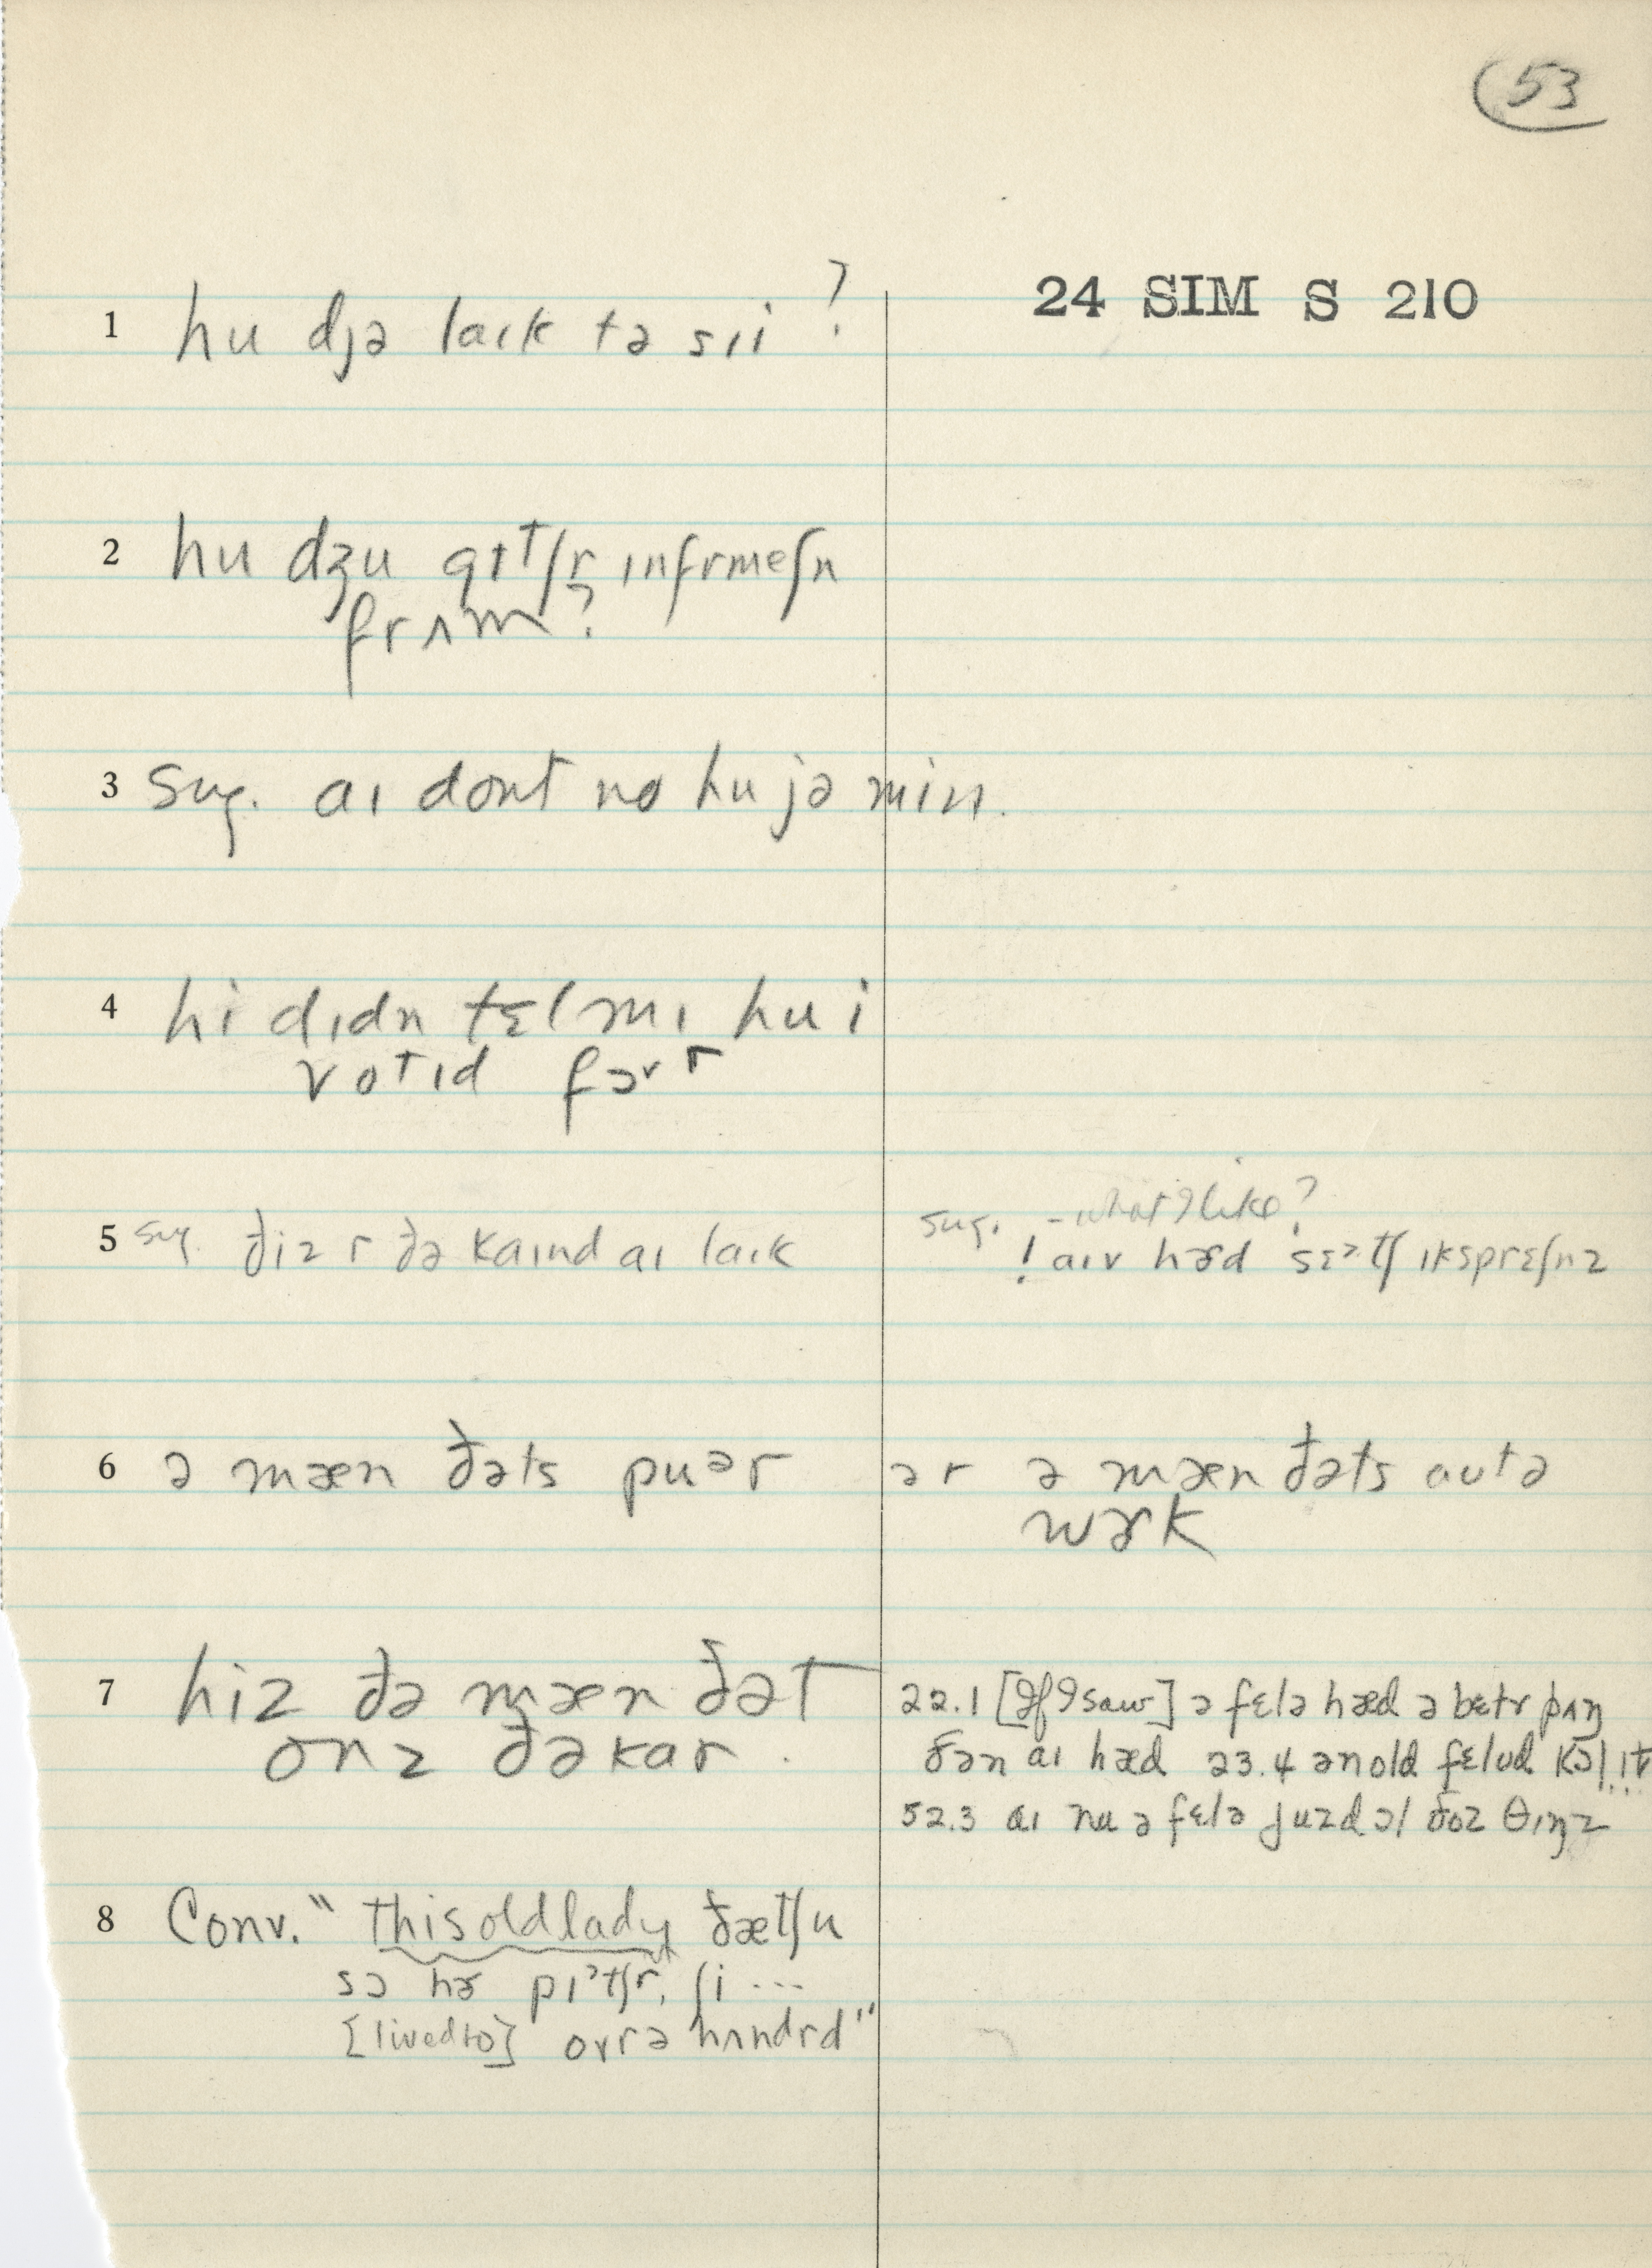 53
24 SIM S 210
1 hu djə laɪk tə sɪi ?
2 hu dʒu gɪtʃr ɪnfrmeʃn
frʌm ?
3 sug. aɪ dont no hu jə min.
4 hi dɪdn tɛl mɪ hu i
votɪd fɔr
5 sug. ðiz r ðə kaɪnd aɪ laɪk
sug. - what I like ?
! aɪv hɚd sɛᵊtʃ ɪksprɛʃnz
6 ə mæn ðəts puᵊr
ər ə mæn ðəts aʊtə
wɚk
7 hiz ðə mæn ðət
onz ðə kar.
22.1 [If I saw] ə fɛlə hæd ə bɛtr þʌŋ
ðən aɪ hæd 23.4 ən old fɛlə kɔl ɪt
52.3 aɪ nu ə fɛlə juzd ɔl ðoz θɪŋz
8 Conv. "this old lady ðætʃu
sɔ hɚ pɪᵊtʃr, ʃi ...
[lived to] ovr ə hʌndrd"